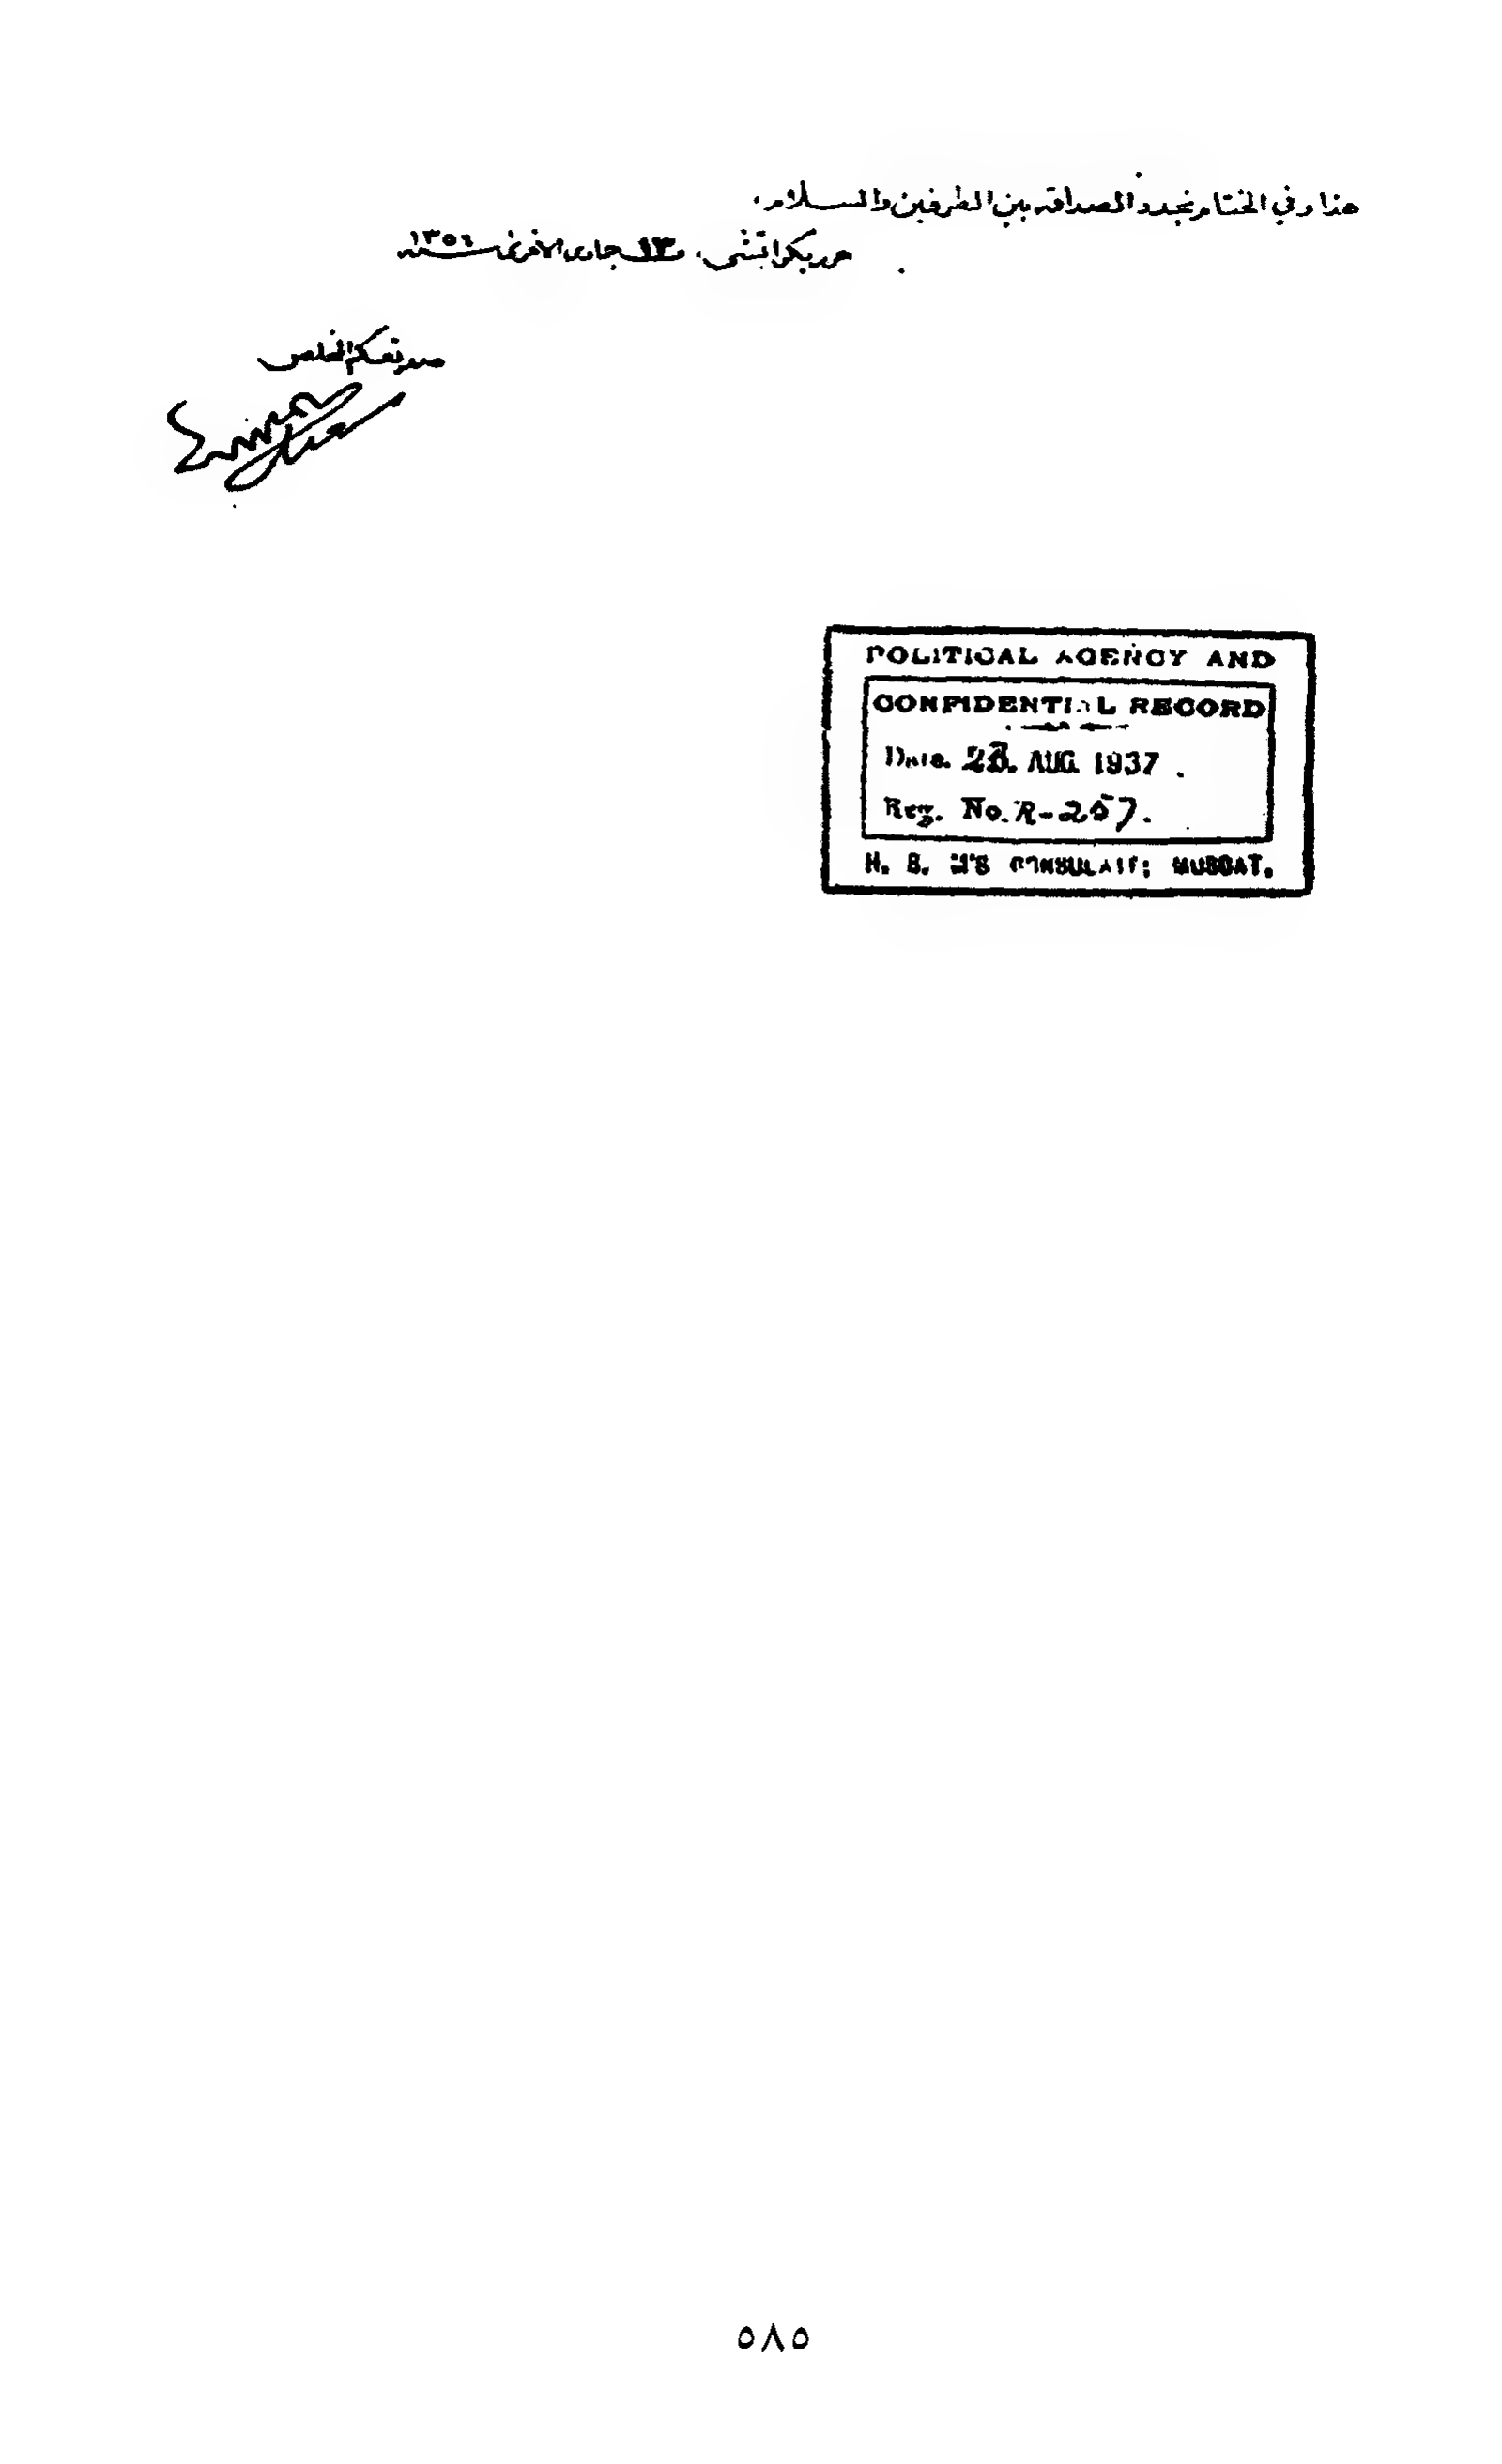 هذا وفي الختام نجدد الصداقه بين الطرفين والسلام.
حرر بكراتشى، ١٣ جمادى الاخرى سنه ١٣٥٦
صديقكم المخلص
POLITICAL AGENCY AND
CONFIDENTIAL RECORD
Date. 23. AUG. 1937.
Reg. No. R-257.
H. B. M'S CONSULATE; MUSCAT.
٥٨٥